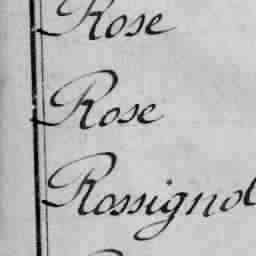 Rose
Rose
Rossignol